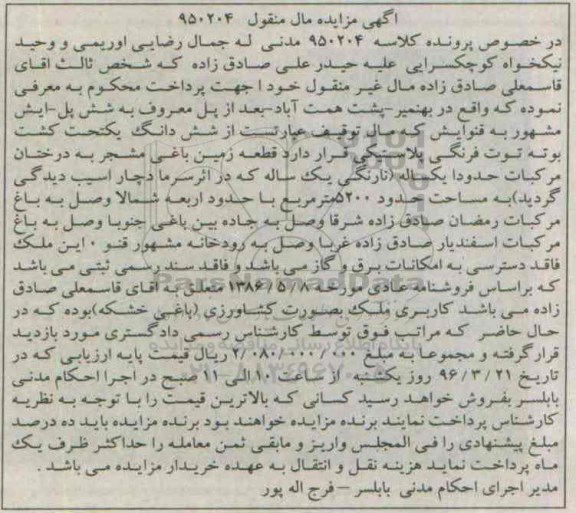 آگهی مزایده مال منقول ۹۵۰۲۰۴
در خصوص پرونده کلاسه ۹۵۰۲۰۴ مدنی له جمال رضایی اوریمی و وحید
نیکخواه کوچکسرایی علیه حیدر علی صادق زاده که شخص ثالث اقای
قاسمعلی صادق زاده مال غیر منقول خود ا جهت پرداخت محکوم به معرفی
نموده که واقع در بهنمیر-پشت همت آباد-بعد از پل معروف به شش پل-ایش
مشهور به قنوایش که مال توقیف عبارتست از شش دانگ یکتخت کشت
بوته توت فرنگی پلاستیکی قرار دارد قطعه زمین باغی مشجر به درختان
مرکبات حدودا یکساله (نارنگی یک ساله که در اثر سرما دچار اسیب دیدگی
گردید)به مساحت حدود ۵۲۰۰مترمربع با حدود اربعه شمالا وصل به باغ
مرکبات رمضان صادق زاده شرقا وصل به جاده بین باغی جنوبا وصل به باغ
مرکبات اسفندیار صادق زاده غربا وصل به رودخانه مشهور قنو ۰ این ملک
فاقد دسترسی به امکانات برق و گاز می باشد و فاقد سند رسمی ثبتی می باشد
که براساس فروشنامه عادی مورخه ۱۳۸۶/۵/۸ متعلق به آقای قاسمعلی صادق
زاده می باشد کاربری ملک بصورت کشاورزی (باغی خشکه)بوده که در
حال حاضر که مراتب فوق توسط کارشناس رسمی دادگستری مورد بازدید
قرار گرفته و مجموعا به مبلغ ۲/۰۸۰/۰۰۰/۰۰۰ ریال قیمت پایه ارزیابی که در
تاریخ ۹۶/۳/۲۱ روز یکشنبه از ساعت ۱۰ الی ۱۱ صبح در اجرا احکام مدنی
بابلسر بفروش خواهد رسید کسانی که بالاترین قیمت را با توجه به نظریه
کارشناس پرداخت نمایند برنده مزایده خواهند بود برنده مزایده باید ده درصد
مبلغ پیشنهادی را فی المجلس واریز و مابقی ثمن معامله را حداکثر ظرف یک
ماه پرداخت نماید هزینه نقل و انتقال به عهده خریدار مزایده می باشد .
مدیر اجرای احکام مدنی بابلسر – فرج اله پور